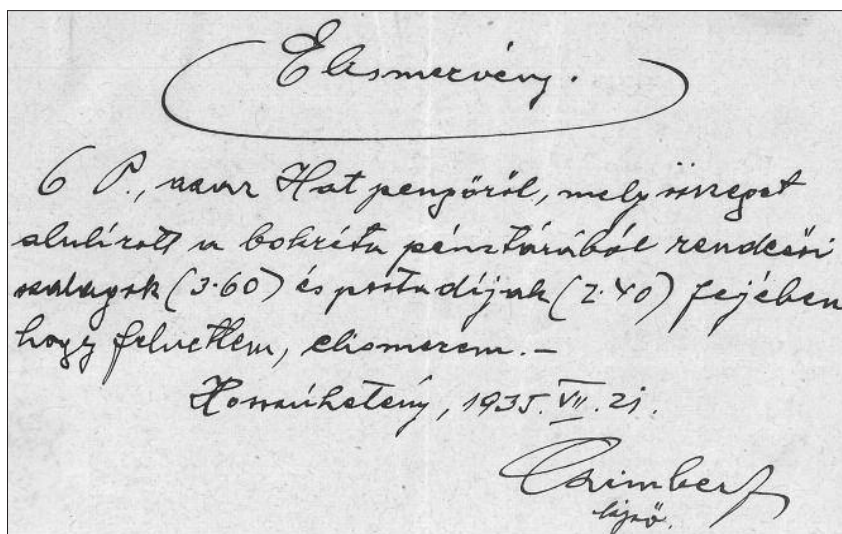 Elismervény.
6 P., azaz Hat pengőről, mely összeget
alulírott a bokréta pénztárából rendezői
szalagok (3·60) és postadíjak (2·40) fejében
hogy felvettem, elismerem.–
Hosszúhetény, 1935. VII. 21.